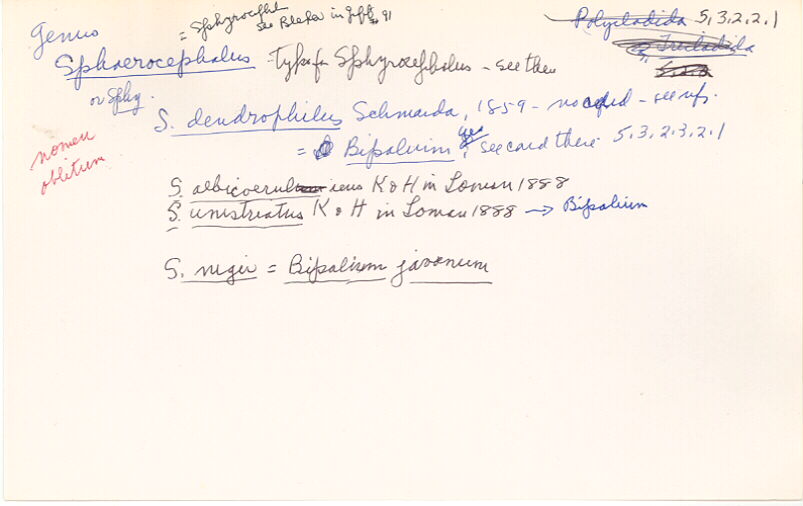 = Sphyroceph
see Bleeker in Jeff 91
Polycladida 5,3,2,2.1
5, Tricladida
Genus
Sphaerocephalus - Typo for Sphyrocephalus - see there
or Sphy.
S. dendrophilus Schmarda, 1859 - no card - see refs.
nomen oblitum
= Bipalium yes, see card there 5,3,2,3,2.1
S. albicoeruleus K & H in Loman 1888
S. unistriatus K & H in Loman 1888 → Bipalium
S. niger = Bipalium javanum